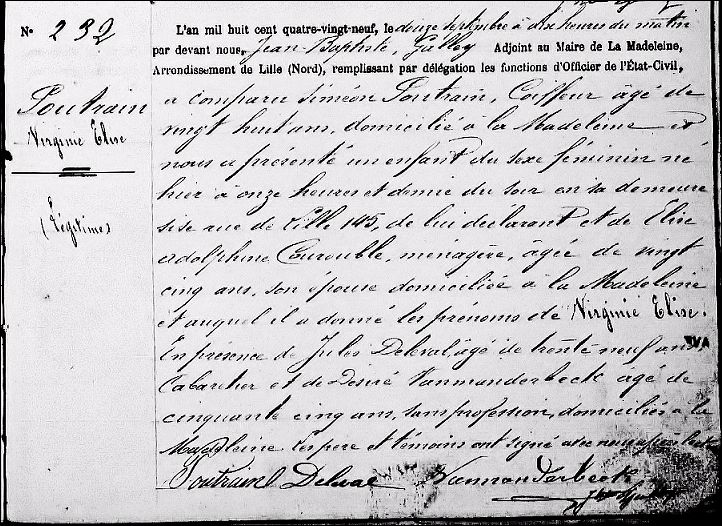 N° 232
L'an mil huit cent quatre-vingt-neuf, le douze septembre à dix heures du matin
par devant nous, Jean-Baptiste, Galloy Adjoint au Maire de La Madeleine,
Arrondissement de Lille (Nord), remplissant par délégation les fonctions d'Officier de l'État-Civil,
Poutrain
Virginie Elise
(Légitime)
a comparu Siméon Poutrain, Coiffeur âgé de
vingt huit ans, domicilié à la Madeleine et
nous a présenté un enfant du sexe féminin né
hier à onze heures et demie du soir en sa demeure
sise rue de Lille 145, de lui déclarant et de Elise
Adolphine Courouble, ménagère, âgée de vingt
cinq ans, son épouse domiciliée à la Madeleine
et auquel il a donné les prénoms de Virginie Elise.
En présence de Jules Deleval, âgé de trente neuf ans
Cabaretier et de Désiré Vanmanderbeck âgé de
cinquante cinq ans, sans profession, domiciliés à la
Madeleine. Les père et témoins ont signé avec nous après lecture
Poutrain Deleval Vanmanderbeck